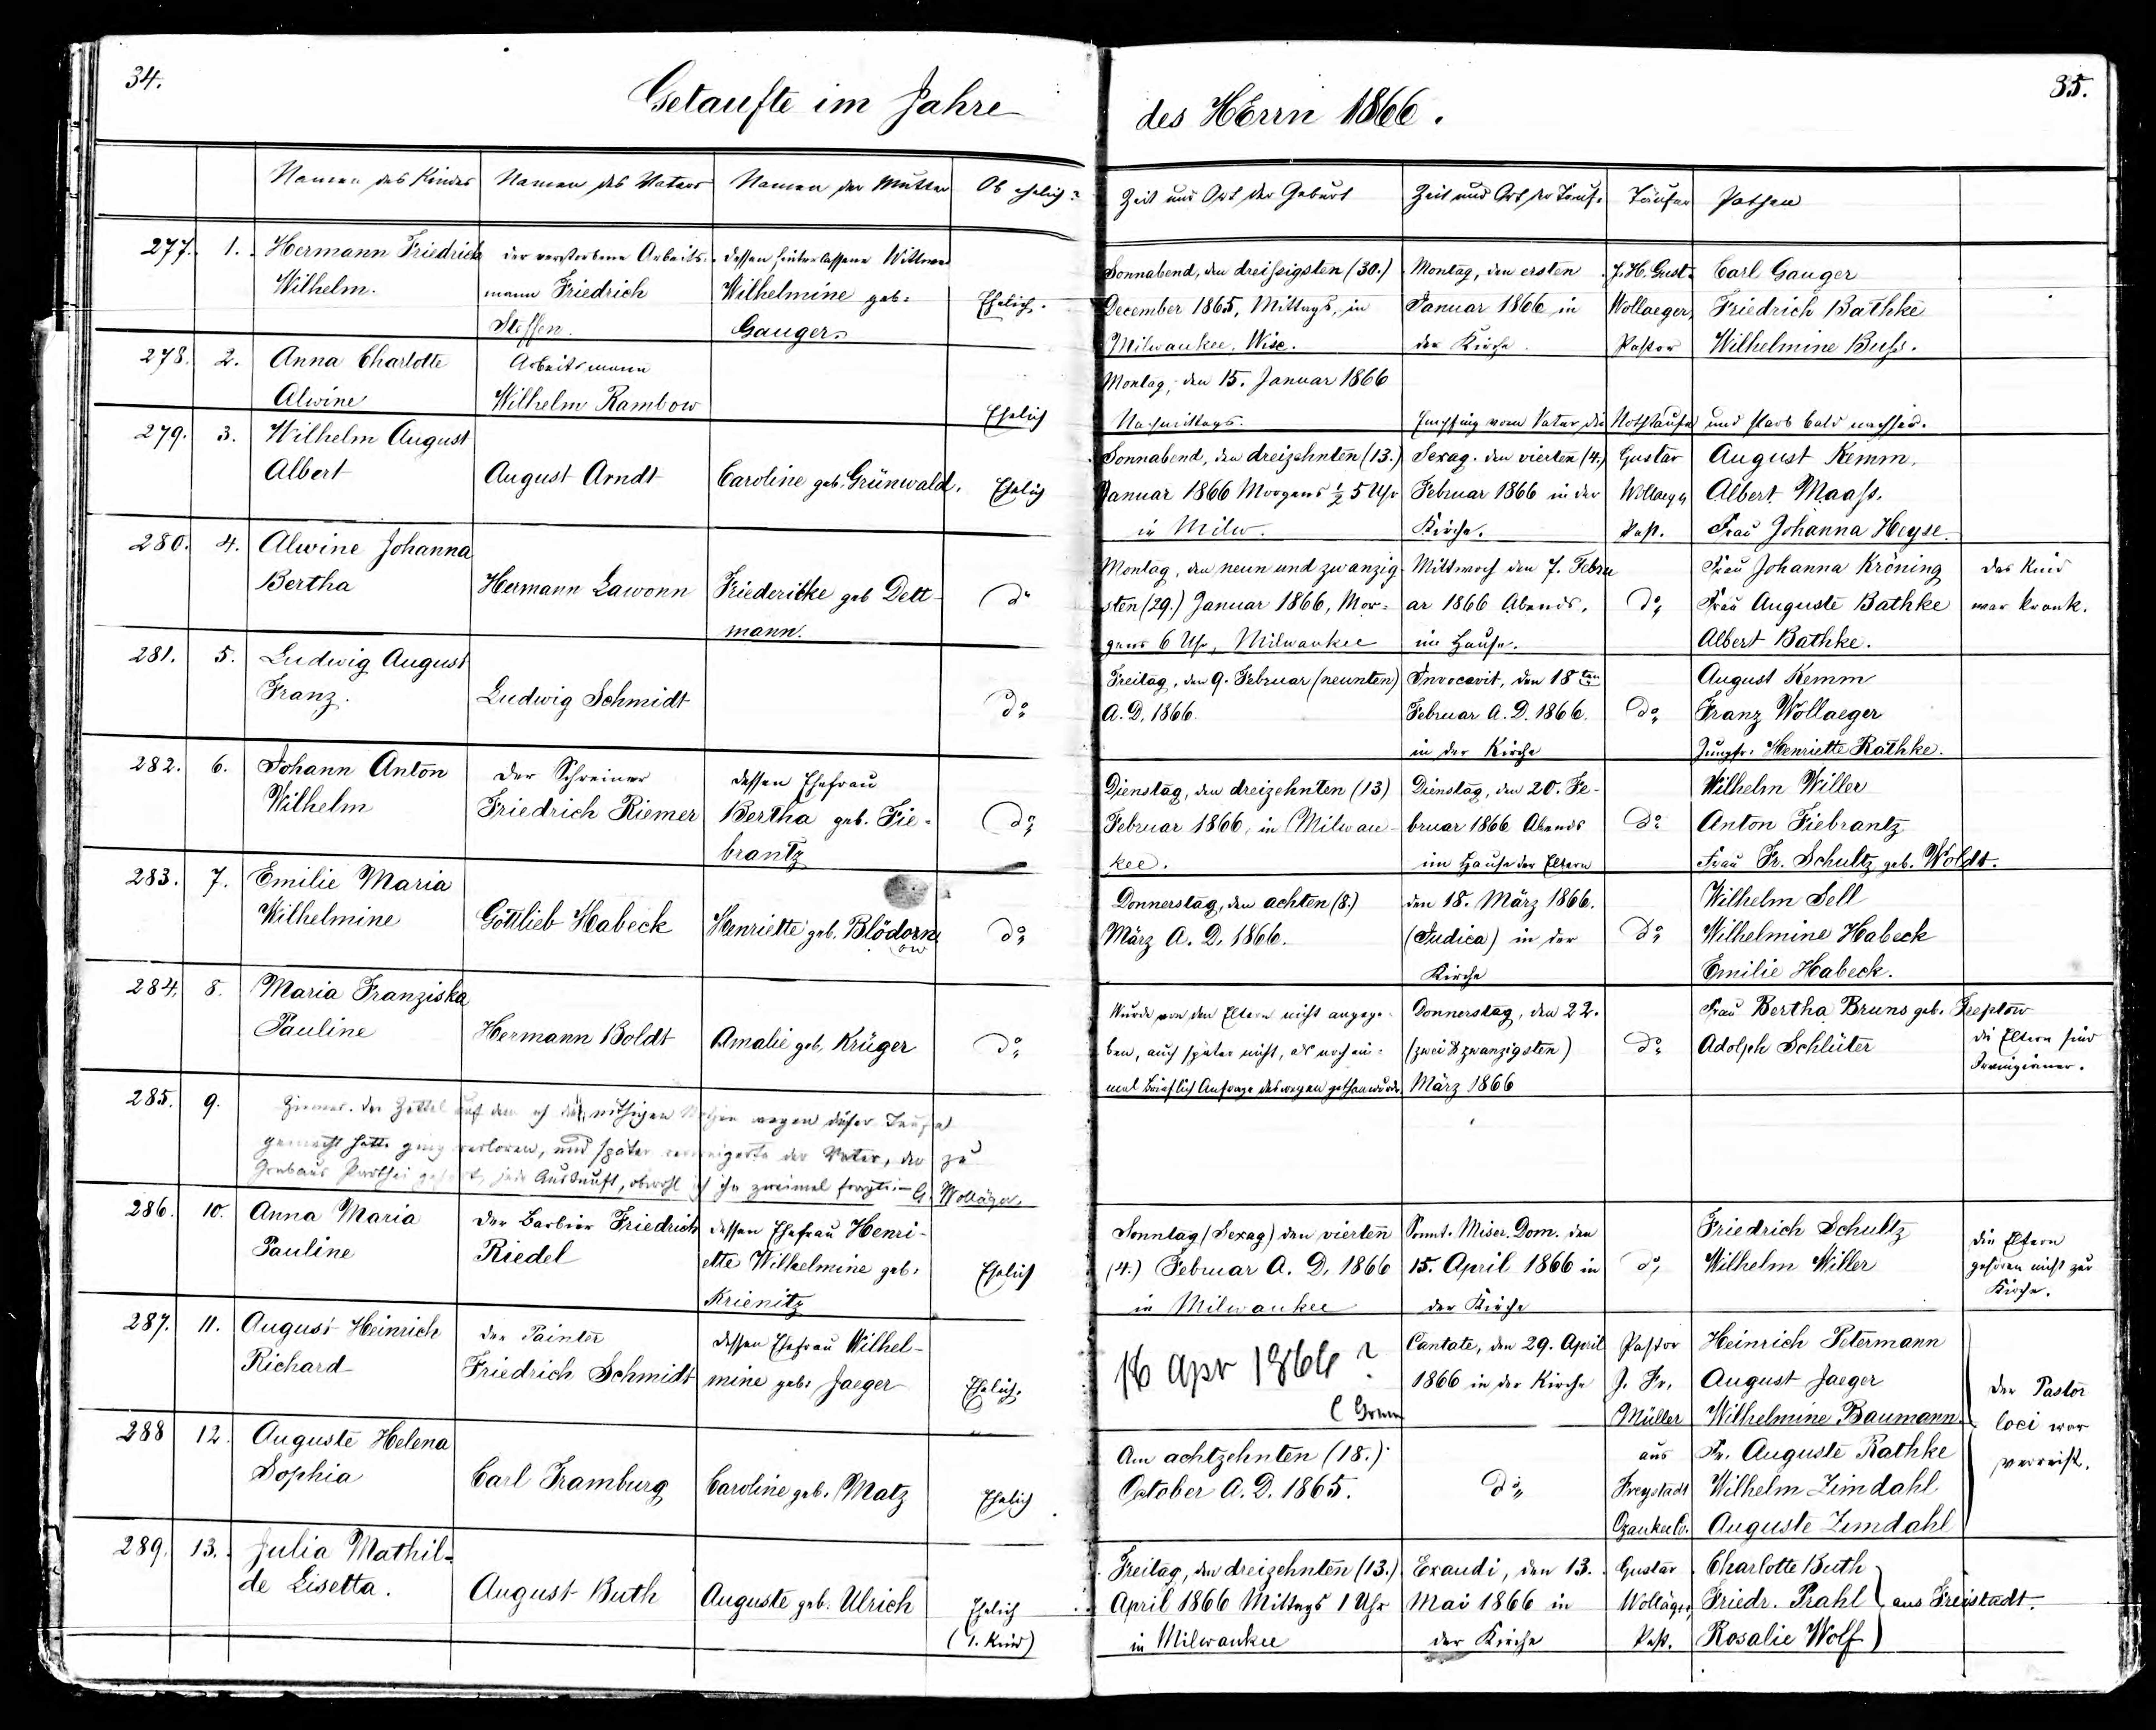 34.
Getaufte im Jahre
des HErrn 1866.
35.
Namen des Kindes
Namen des Vaters
Namen der Mutter
Ob ehelich?
Zeit und Ort der Geburt
Zeit und Ort der Taufe
Täufer
Pathen
277. 1.
Hermann Friedrich
Wilhelm.
der verstorbene Arbeits-
mann Friedrich
Steffen.
dessen hinterlassene Wittwe
Wilhelmine geb.
Gauger.
Ehelich.
Sonnabend, den dreißigsten (30.)
December 1865, Mittags, in
Milwaukee, Wisc.
Montag, den ersten
Januar 1866 in
der Kirche.
J. H. Gust.
Wollaeger,
Pastor
Carl Gauger
Friedrich Bathke
Wilhelmine Buss.
278. 2.
Anna Charlotte
Alwine
Arbeitsmann
Wilhelm Rambow
Ehelich
Montag, den 15. Januar 1866
Nachmittags.
Empfing vom Vater die Nothtaufe und starb bald nachher.
279. 3.
Wilhelm August
Albert
August Arndt
Caroline geb. Grünwald.
Ehelich
Sonnabend, den dreizehnten (13.)
Januar 1866 Morgens ½ 5 Uhr
in Milw.
Sexag. den vierten (4.)
Februar 1866 in der
Kirche.
Gustav
Wollaeger
Past.
August Kemm.
Albert Maass.
Frau Johanna Heyse.
280. 4.
Alwine Johanna
Bertha
Hermann Lawonn
Friedericke geb Dett-
mann.
do
Montag, den neun und zwanzig-
sten (29.) Januar 1866, Mor-
gens 6 Uhr, Milwaukee
Mittwoch den 7. Febru
ar 1866 Abends,
im Hause.
do
Frau Johanna Kröning
Frau Auguste Bathke
Albert Bathke.
das Kind
war krank.
281. 5.
Ludwig August
Franz.
Ludwig Schmidt
do
Freitag, den 9. Februar (neunten)
A. D. 1866.
Invocavit, den 18ten
Februar A. D. 1866.
in der Kirche
do
August Kemm
Franz Wollaeger
Jungfr. Henriette Rathke.
282. 6.
Johann Anton
Wilhelm
Der Schreiner
Friedrich Riemer
dessen Ehefrau
Bertha geb. Fie-
brantz
do
Dienstag, den dreizehnten (13)
Februar 1866, in Milwau-
kee.
Dienstag, den 20. Fe-
bruar 1866 Abends
im Hause der Eltern
do
Wilhelm Willer
Anton Fiebrantz
Frau Fr. Schultz geb. Woldt.
283. 7.
Emilie Maria
Wilhelmine
Gottlieb Habeck
Henriette geb. Blödorn
ow
do
Donnerstag, den achten (8.)
März A. D. 1866.
den 18. März 1866.
(Judica) in der
Kirche
do
Wilhelm Sell
Wilhelmine Habeck
Emilie Habeck.
284. 8.
Maria Franziska
Pauline
Hermann Boldt
Amalie geb. Krüger
do
Wurde von den Eltern nicht angege-
ben, auch später nicht, als noch ein-
mal brieflich Anfrage deswegen gethan wurde.
Donnerstag, den 22.
(zwei & zwanzigsten)
März 1866
do
Frau Bertha Bruns geb. Treptow
Adolph Schlüter
die Eltern sind
Irvingianer.
285. 9.
der Zettel auf dem ich die nöthigen Notizen wegen dieser Taufe
gemacht hatte ging verloren, und später verweigerte der Vater, der zu
Grabaus Parthei gehört, jede Auskunft, obwohl ich ihn zweimal fragte. G. Wolläger.
286. 10.
Anna Maria
Pauline
Der Barbier Friedrich
Riedel
dessen Ehefrau Henri-
ette Wilhelmine geb.
Krienitz
Ehelich
Sonntag (Sexag) den vierten
(4.) Februar A. D. 1866
in Milwaukee
Sonnt. Miser. Dom. den
15. April 1866 in
der Kirche
do
Friedrich Schultz
Wilhelm Willer
die Eltern
gehören nicht zur
Kirche.
287. 11.
August Heinrich
Richard
der Painter
Friedrich Schmidt
dessen Ehefrau Wilhel-
mine geb. Jaeger
Ehelich.
16 Apr 1866?
Cantate, den 29. April
1866 in der Kirche
Pastor
J. Fr.
Müller
Heinrich Petermann
August Jaeger
Wilhelmine Baumann
der Pastor
loci war
verreist.
288 12.
Auguste Helena
Sophia
Carl Tramburg
Caroline geb. Matz
Ehelich
Am achtzehnten (18.)
October A. D. 1865.
do
aus
Freystadt
Ozaukee Co.
Fr. Auguste Rathke
Wilhelm Zimdahl
Auguste Zimdahl
289. 13.
Julia Mathil-
de Lisetta.
August Buth
Auguste geb. Ulrich
Ehelich
(1. Kind)
Freitag, den dreizehnten (13.)
April 1866 Mittags 1 Uhr
in Milwaukee
Exaudi, den 13.
Mai 1866 in
der Kirche
Gustav
Wolläger,
Past.
Charlotte Buth
Friedr. Prahl
Rosalie Wolf
aus Freistadt.